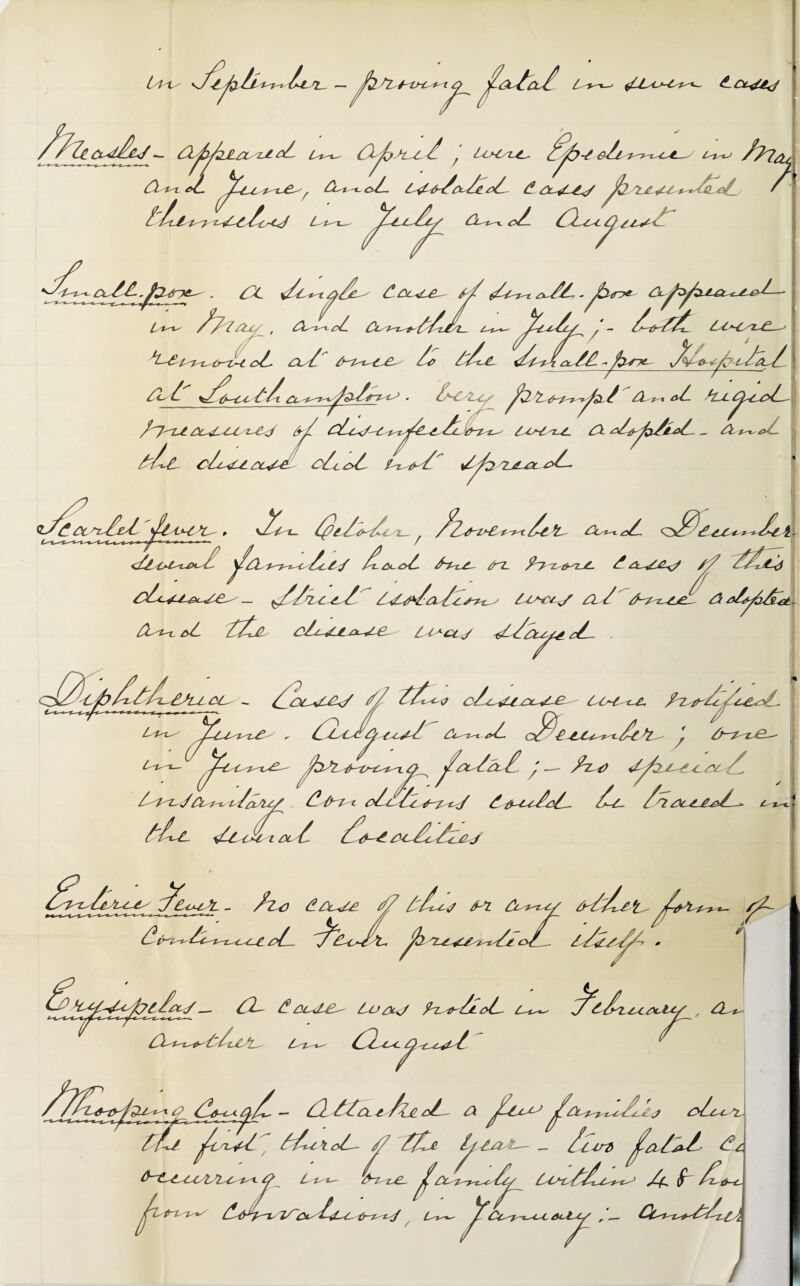 in September — proving fatal in seven cases
Measles — appeared in April ; were Epedemic in May
and June, and isolated cases presented
themselves in July and August
Small-pox . A single case of Small-pox appeared
in May, and another in July ; — both were
removed at once to the Small-pox Hospital
at Southampton . Very prompt and rigid
measures of disinfection were adopted — and
the disease did not spread
Scarlet fever . In October, November and December
several families had one or more cases of this
disease — Strict isolation was at once adopted
and the disease was stayed .
Diphtheria — Cases of this disease were notified
in June . August and December ; one
in June proving fatal ; — no special
insanitary conditions could be traced in
the several localities
Enteric Fever — No case of this or any other form of
Continued Fever presented itself .
Erysipelas — A case was noted in February, an
Another in August
Whooping Cough — Attacked a few families dur
the first third of the year — two fatal Ca
occurring in one family within 48 hou
from Convulsions, in January ; — Another